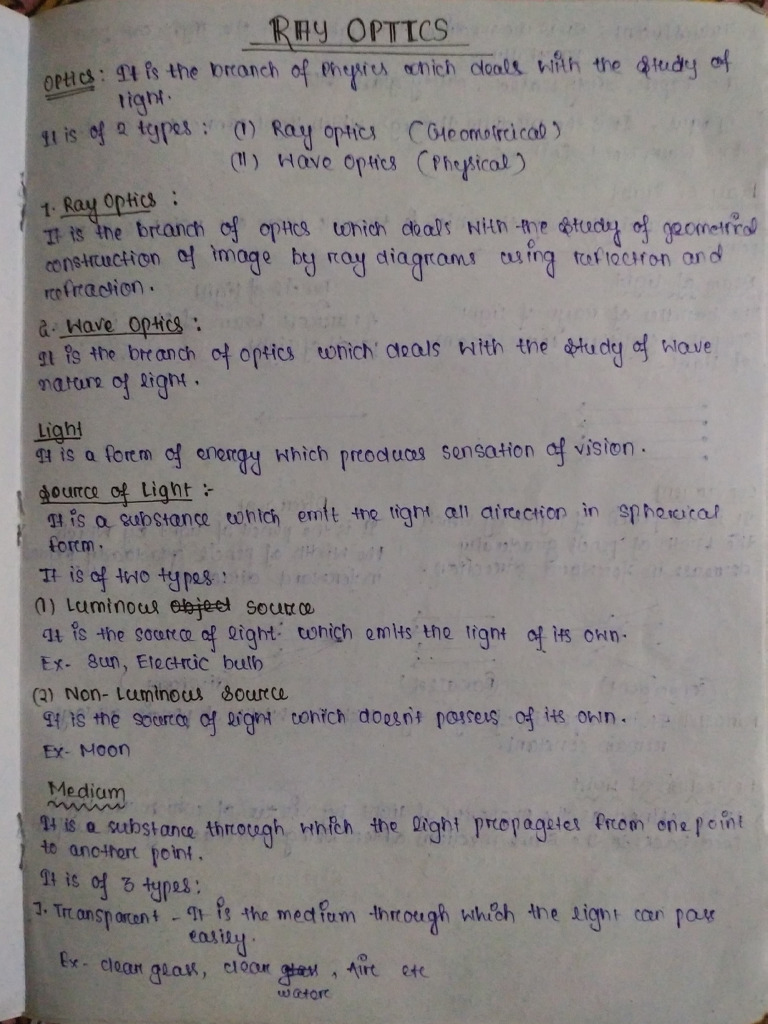 RAY OPTICS
Optics: It is the branch of Physics which deals with the study of
light.
It is of 2 types: (I) Ray optics (Geometrical)
(II) Wave Optics (Physical)
1. Ray Optics :
It is the branch of optics which deals with the study of geometrical
construction of image by ray diagrams using reflection and
refraction.
2. Wave Optics :
It is the branch of optics which deals with the study of wave
nature of light.
Light
It is a form of energy which produces sensation of vision.
Source of Light :-
It is a substance which emit the light all direction in spherical
form.
It is of two types:
(1) Luminous object source
It is the source of light which emits the light of its own.
Ex- Sun, Electric bulb
(2) Non-Luminous Source
It is the source of light which doesn't possess of its own.
Ex- Moon
Medium
It is a substance through which the light propagetes from one point
to another point.
It is of 3 types:
1. Transparent - It is the medium through which the light can pass
easily.
Ex- clear glass, clear glass, Air etc
water